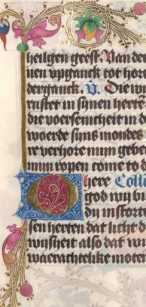 heilgen geest. Van der
uen vpganck tot hor
derganck. V. Die w
rustet in sinen herte
die voersenheit in d
woerde sijns mondes
re verhore mijn gebet
mijn ropen come to d
here Colle
god wij bi
dij instorte
sen herten dat licht d
wijsheit also dat w
waerachtelike moter